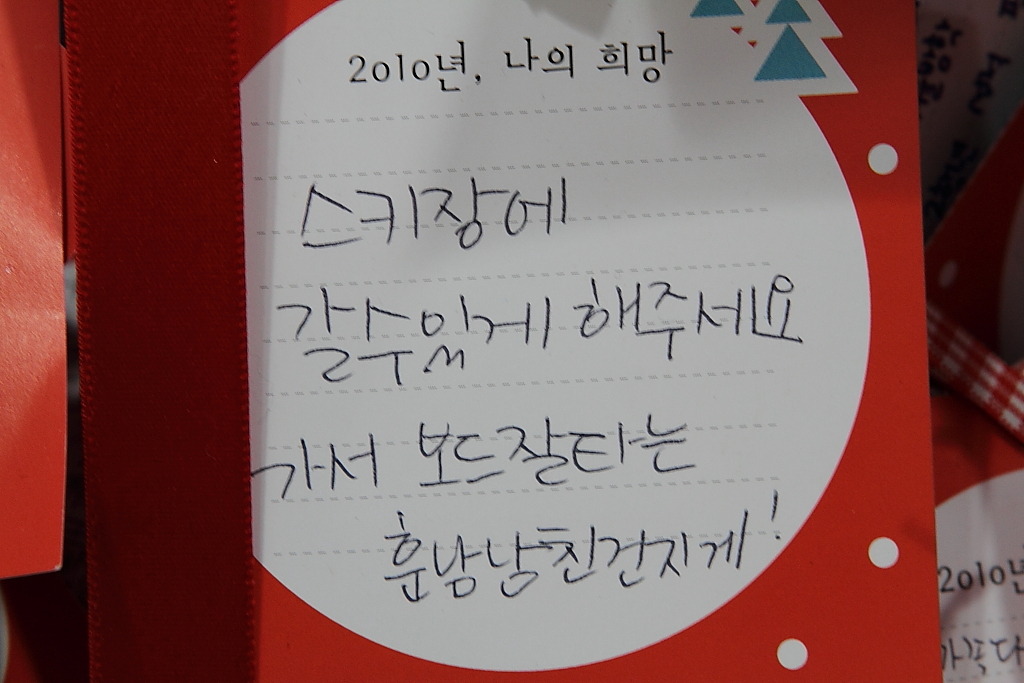 2010년, 나의 희망
스키장에
갈수있게 해주세요
가서 보드잘타는
훈남남친건지게!
2010년